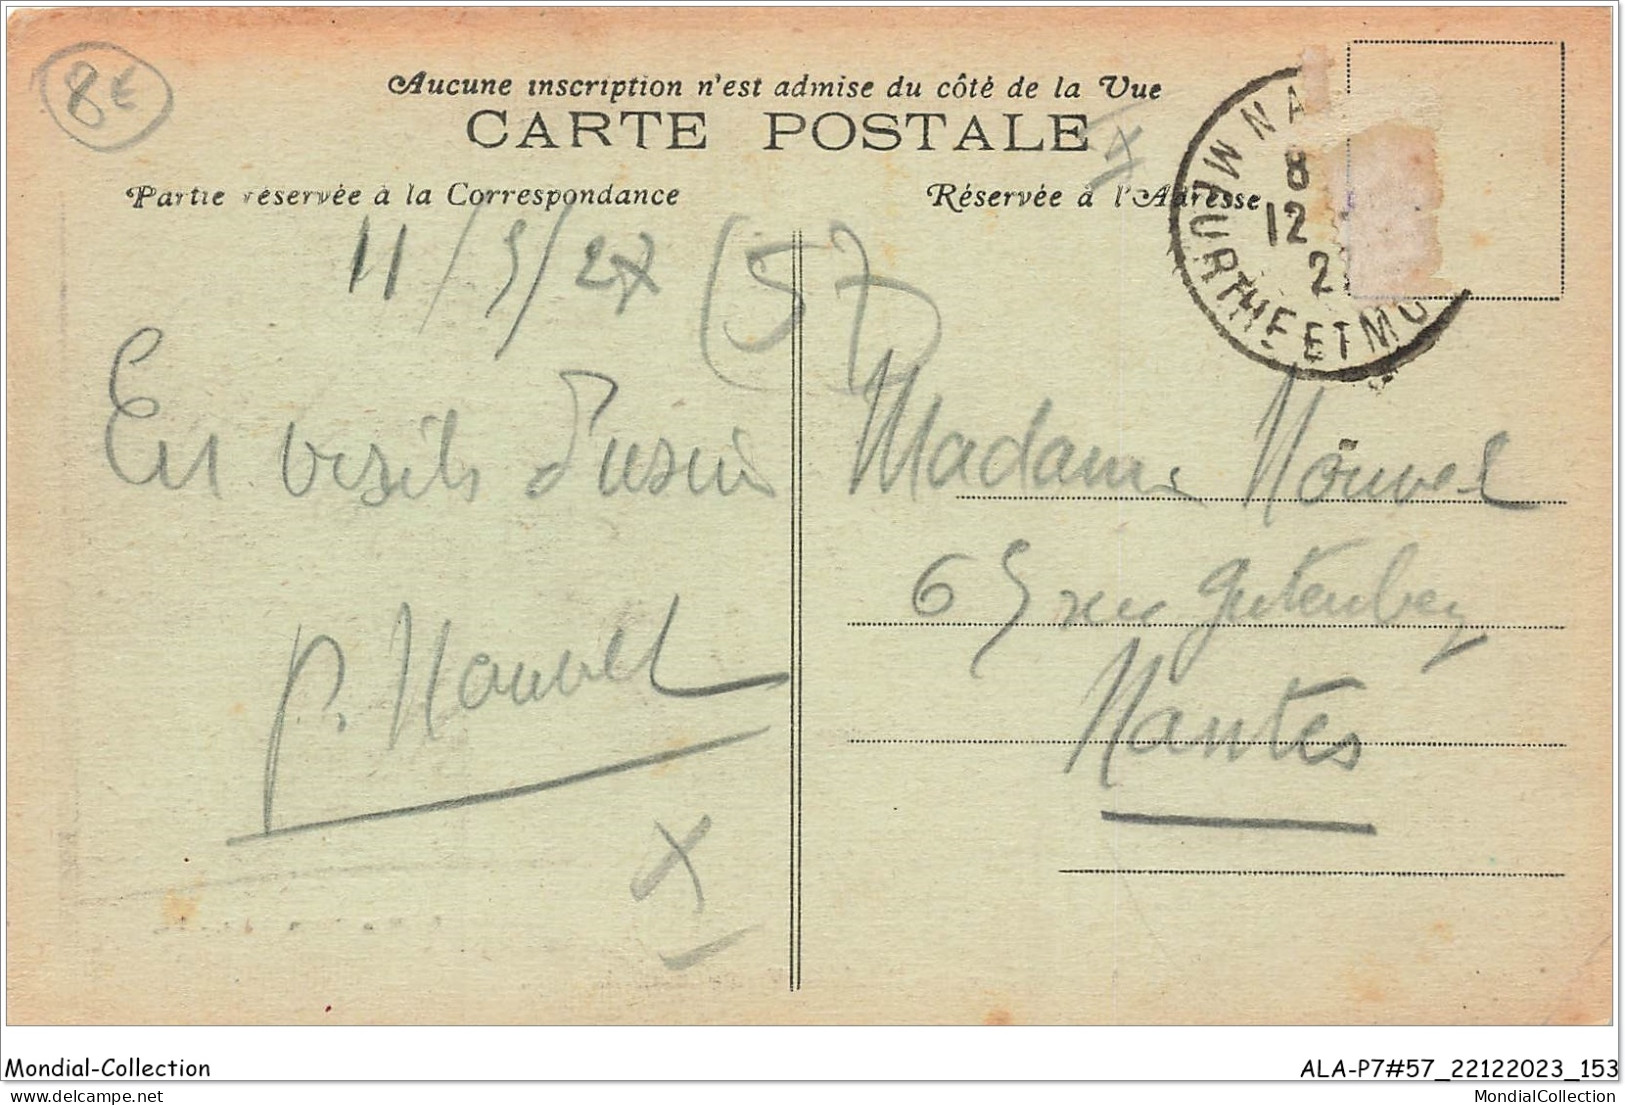 8€
Aucune inscription n'est admise du côté de la Vue
CARTE POSTALE
Partie réservée à la Correspondance
Réservée à l'Adresse
NA
8
12
2
MEURTHE ET MO
11/5/27 (57)
En visite d'usine
P. Nouvel
X
Madame Nouvel
65 rue Gutenberg
Nantes
Mondial-Collection
ALA-P7#57_22122023_153
delcampe.net
MondialCollection